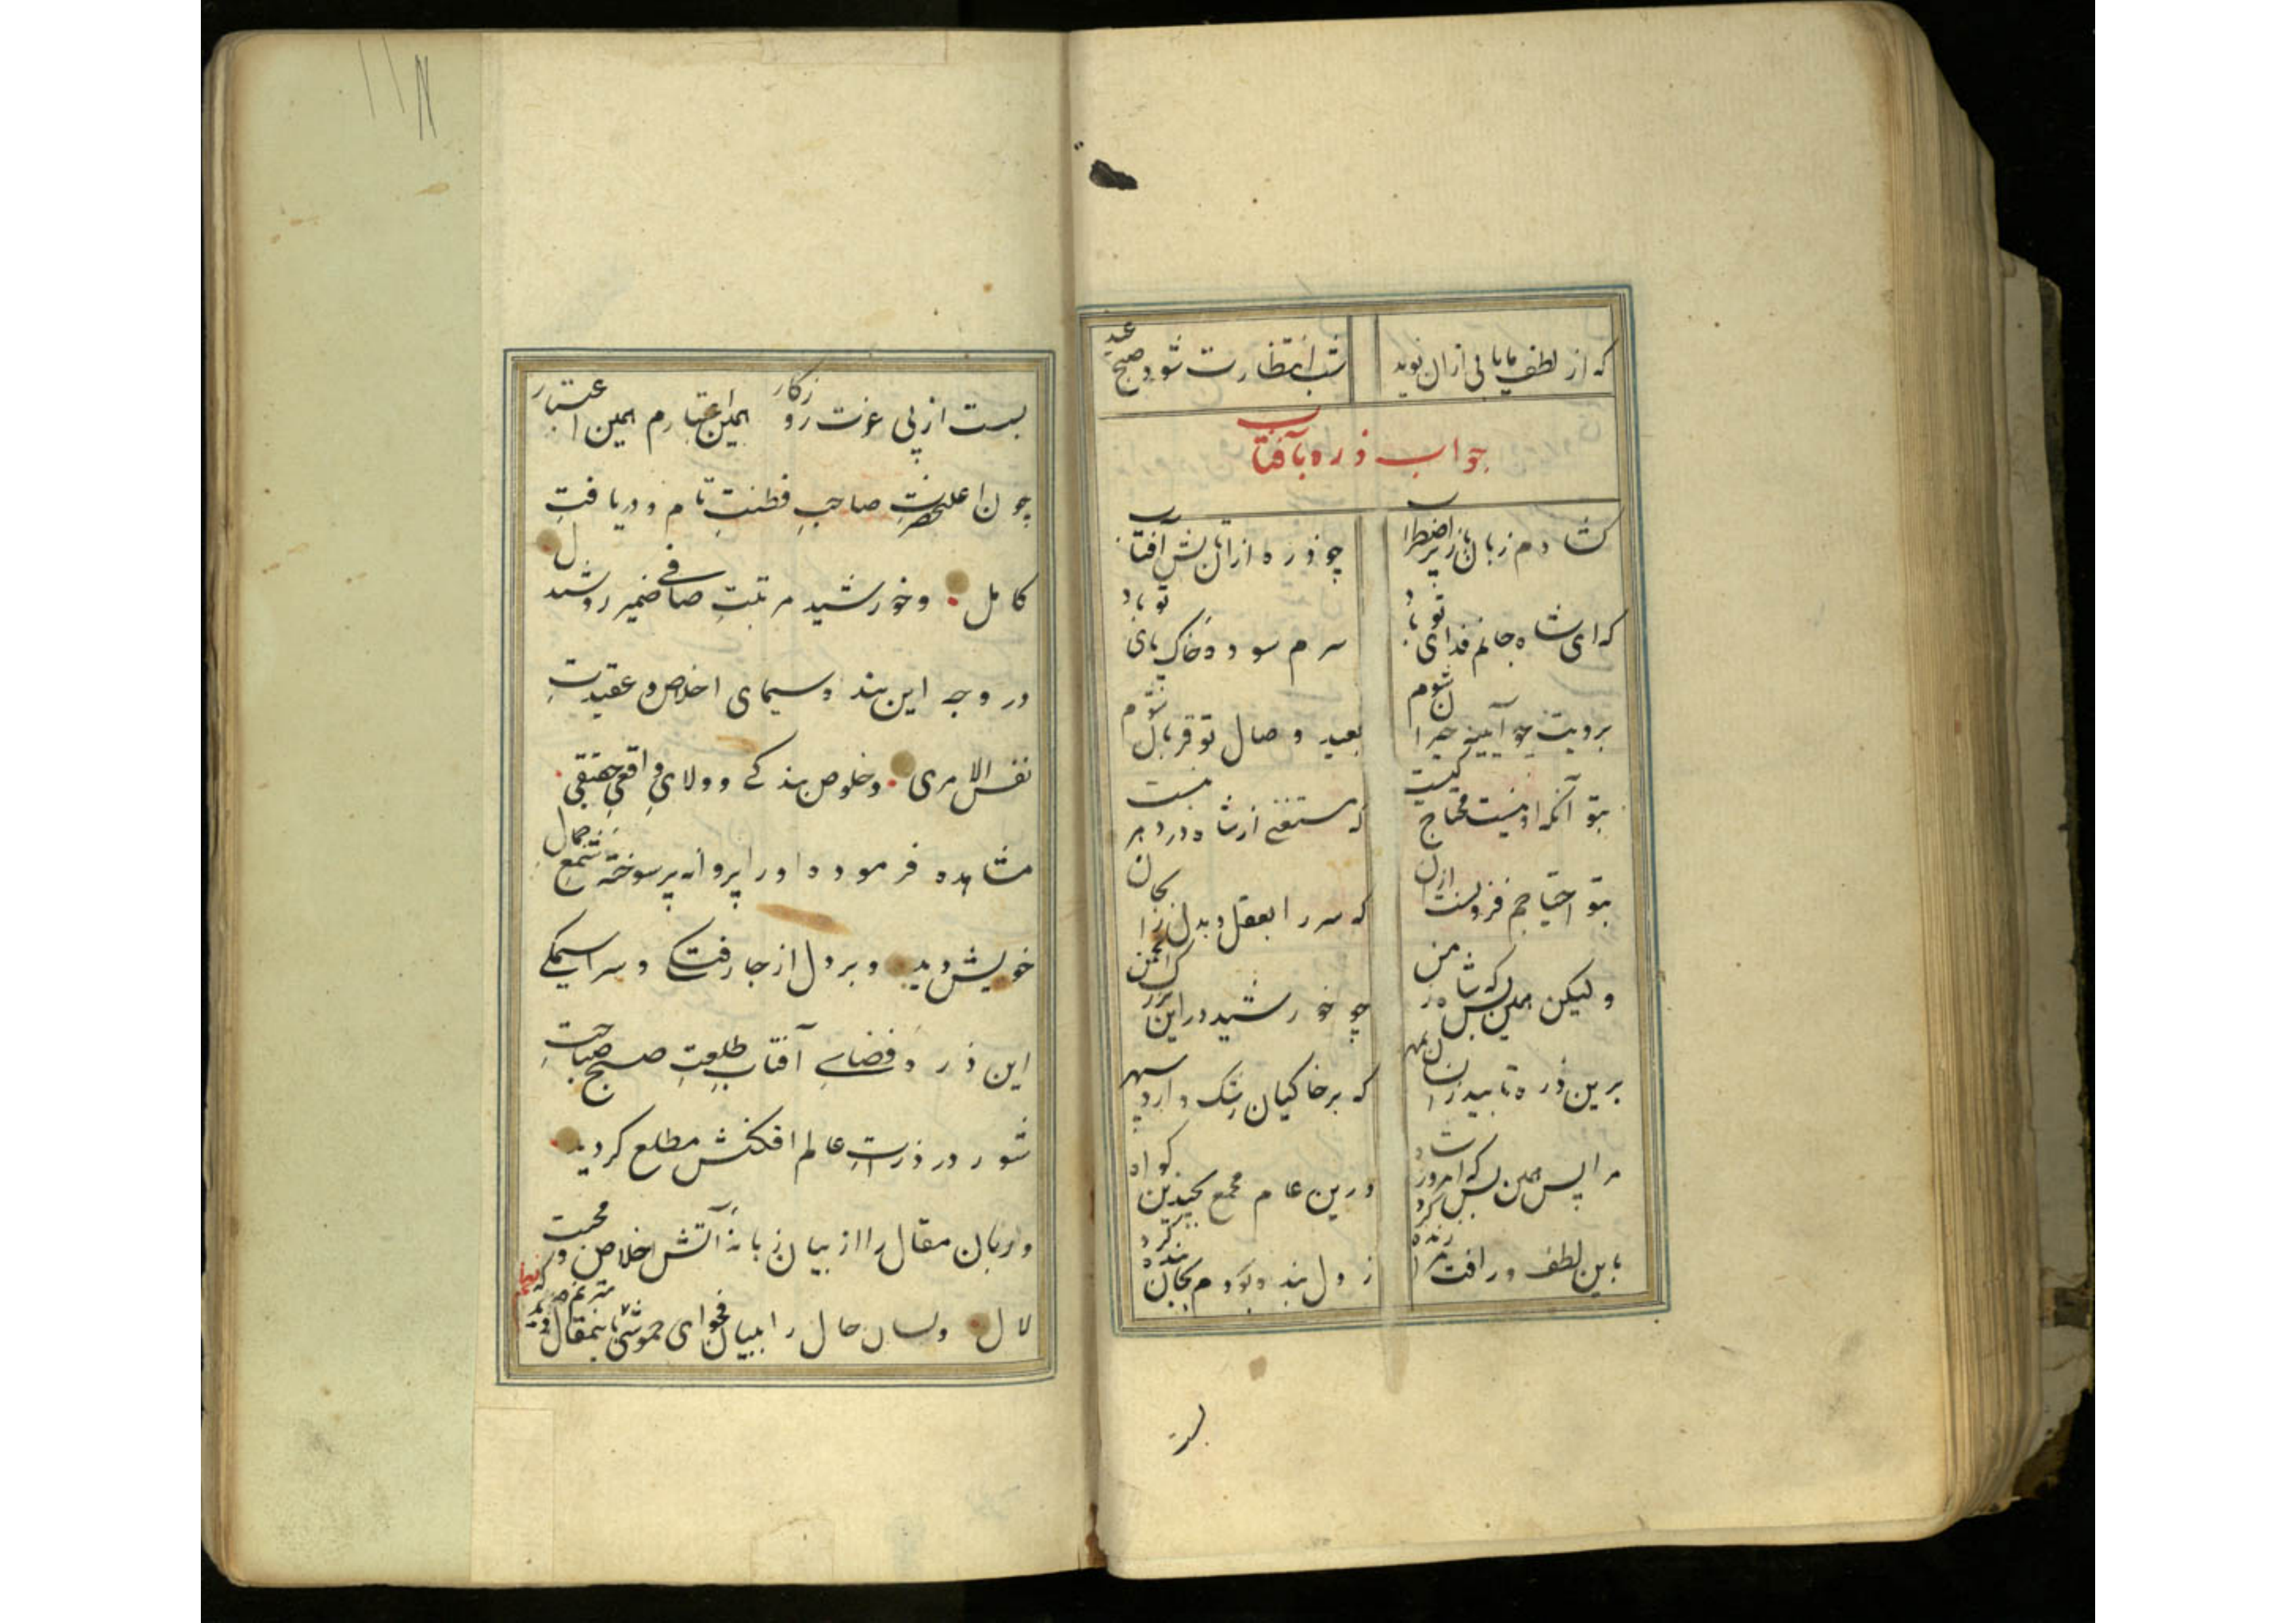 که از لطف ما یابی از آن نوید شب انتظارت شود صبح عید
جواب ذره بآفتاب
گشادم زبان باز پر اضطراب چو ذره از آن تابش آفتاب
که ای شاه جانم فدای تو باد سرم سوده خاک پای تو باد
برویت چو آیینه حیران شوم بعید وصال تو قربان شوم
بتو آنکه او نیست محتاج کیست که مستغنی از شاه در دهر نیست
بتو احتیاجم فزونست از آن که سر را بعقل و بدن را بجان
ولیکن همین بس که شاه زمن چو خورشید در این بزرگ انجمن
برین ذره تابید ز انسان بمهر که بر خاکیان رشک دارد سپهر
مرا پس همین بس که امروز شاه درین عام مجمع بچندین گواه
باین لطف و رافت مرا زنده کرد ز دل بنده بودم بجان بنده کرد
بست
بست از پی عزت روزگار همین اعتبارم همین اعتبار
چون اعلیحضرت صاحب فطنت تام و دریافت
کامل و خورشید مرتبت صافی ضمیر روشندل
در وجه این بنده سیمای اخلاص و عقیدت
نفس الامری و خلوص بندگی و ولای واقعی حقیقی
مشاهده فرموده او را پروانه پر سوخته شمع جمال
خویش دید و بر دل از جا رفتگی و سراسیمگی
این ذره فضای آفتاب طلعت صبح صباحت
شور در ذرات عالم افکنش مطلع گردید
و زبان مقال را از بیان زبانه آتش اخلاص و محبت
لال و لسان حال را ببیان فحوای خموشی باینمقال مترنم دید که